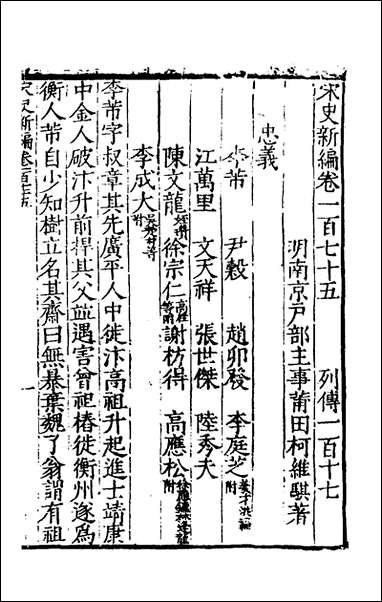 宋史新編卷一百七十五 列傳一百十七
明南京戶部主事莆田柯維騏著
忠義
李芾 尹穀 趙卯發 李庭芝附
江萬里 文天祥 張世傑 陸秀夫
陳文龍 徐宗仁 謝枋得 高應松附
李成大附
李芾字叔章其先廣平人中徙汴高祖升起進士靖康
中金人破汴升前捍其父並遇害曾祖椿徙衡州遂爲
衡人芾自少知樹立名其齋曰無暴棄魏了翁謂有祖
宋史新編卷百七十五 一